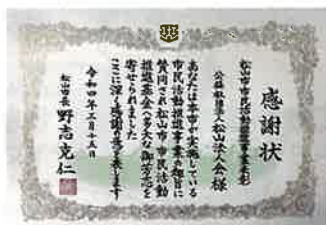 感謝状
松山市市民活動推進事業表彰
公益社団法人松山法人会様
あなたは本市が実施している
市民活動推進事業の趣旨に
賛同され松山市市民活動
推進基金へ多大な御芳志を
寄せられました
ここに深く感謝の意を表します
令和四年三月十五日
松山市長 野志克仁